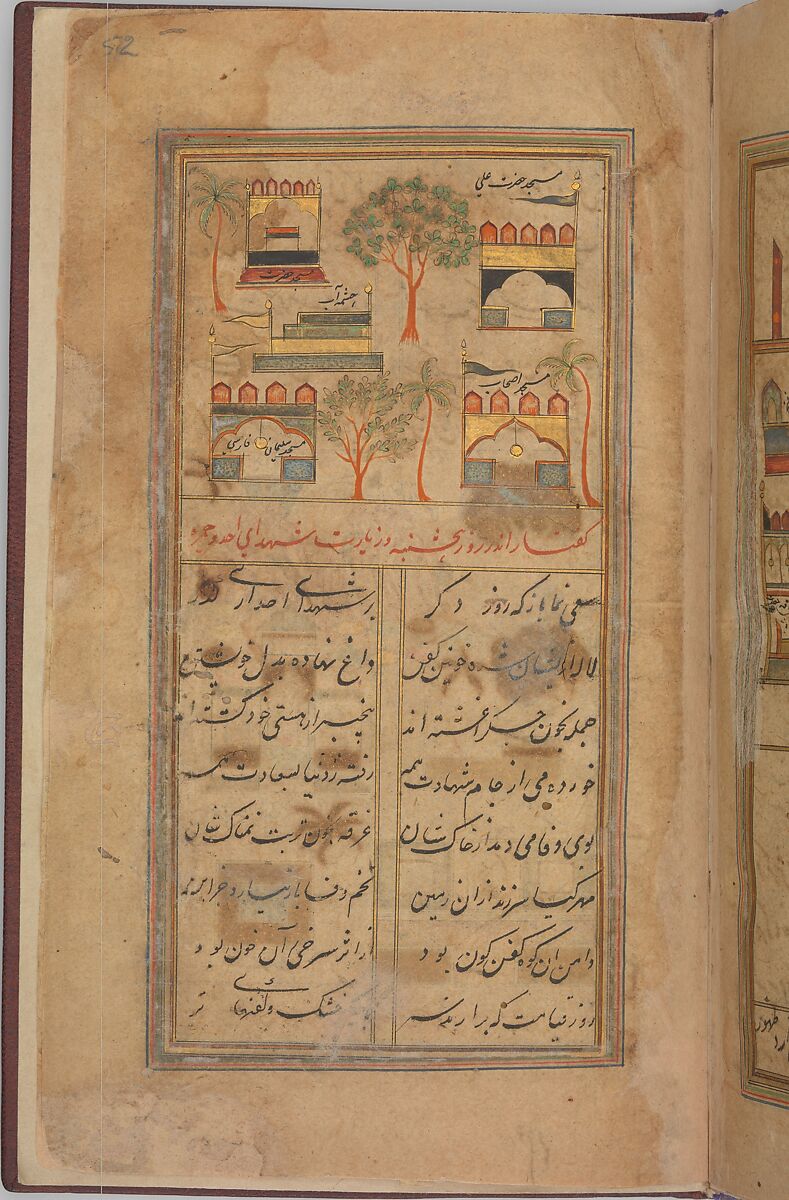 52
مسجد حضرت علی
مسجد حضرت
چشمه آب
مسجد اصحاب
مسجد سلیمان فارسی
گفتار اندر روز پنجشنبه و زیارت شهدای احد و حمزه
سعی نما باز که روز دگر
بر شهدای احد آری گذر
شده خونین کفن
داغ نهاده بدل خویشتن
جمله بخون جگر آغشته اند
بیخبر از هستی خود گشته اند
خورده می از جام شهادت همه
رفته ز دنیا بسعادت همه
بوی وفا می دمد از خاک شان
غرقه بخون تربت نمناک شان
مهر گیا سر زند از ان زمین
تخم وفا بار نیارد جز این
دامن آن کوه کفن کون بود
از اثر سرخی آن خون بود
روز قیامت که برارند سر
خشک و کفنهای تر